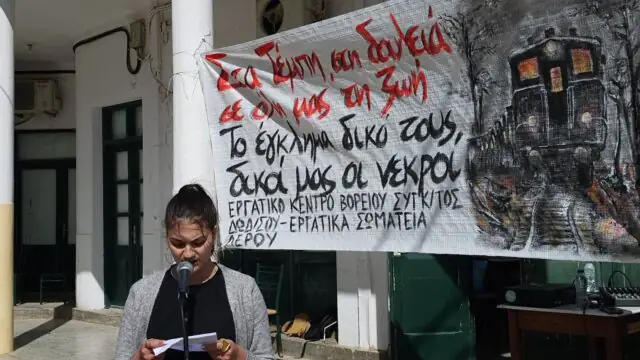 Στα Τέμπη, στη δουλειά
σε όλη μας τη ζωή
Το έγκλημα δικό τους,
δικοί μας οι νεκροί
ΕΡΓΑΤΙΚΟ ΚΕΝΤΡΟ ΒΟΡΕΙΟΥ ΣΥΓΚ/ΤΟΣ
ΔΩΔ/ΣΟΥ-ΕΡΓΑΤΙΚΑ ΣΩΜΑΤΕΙΑ
ΛΕΡΟΥ